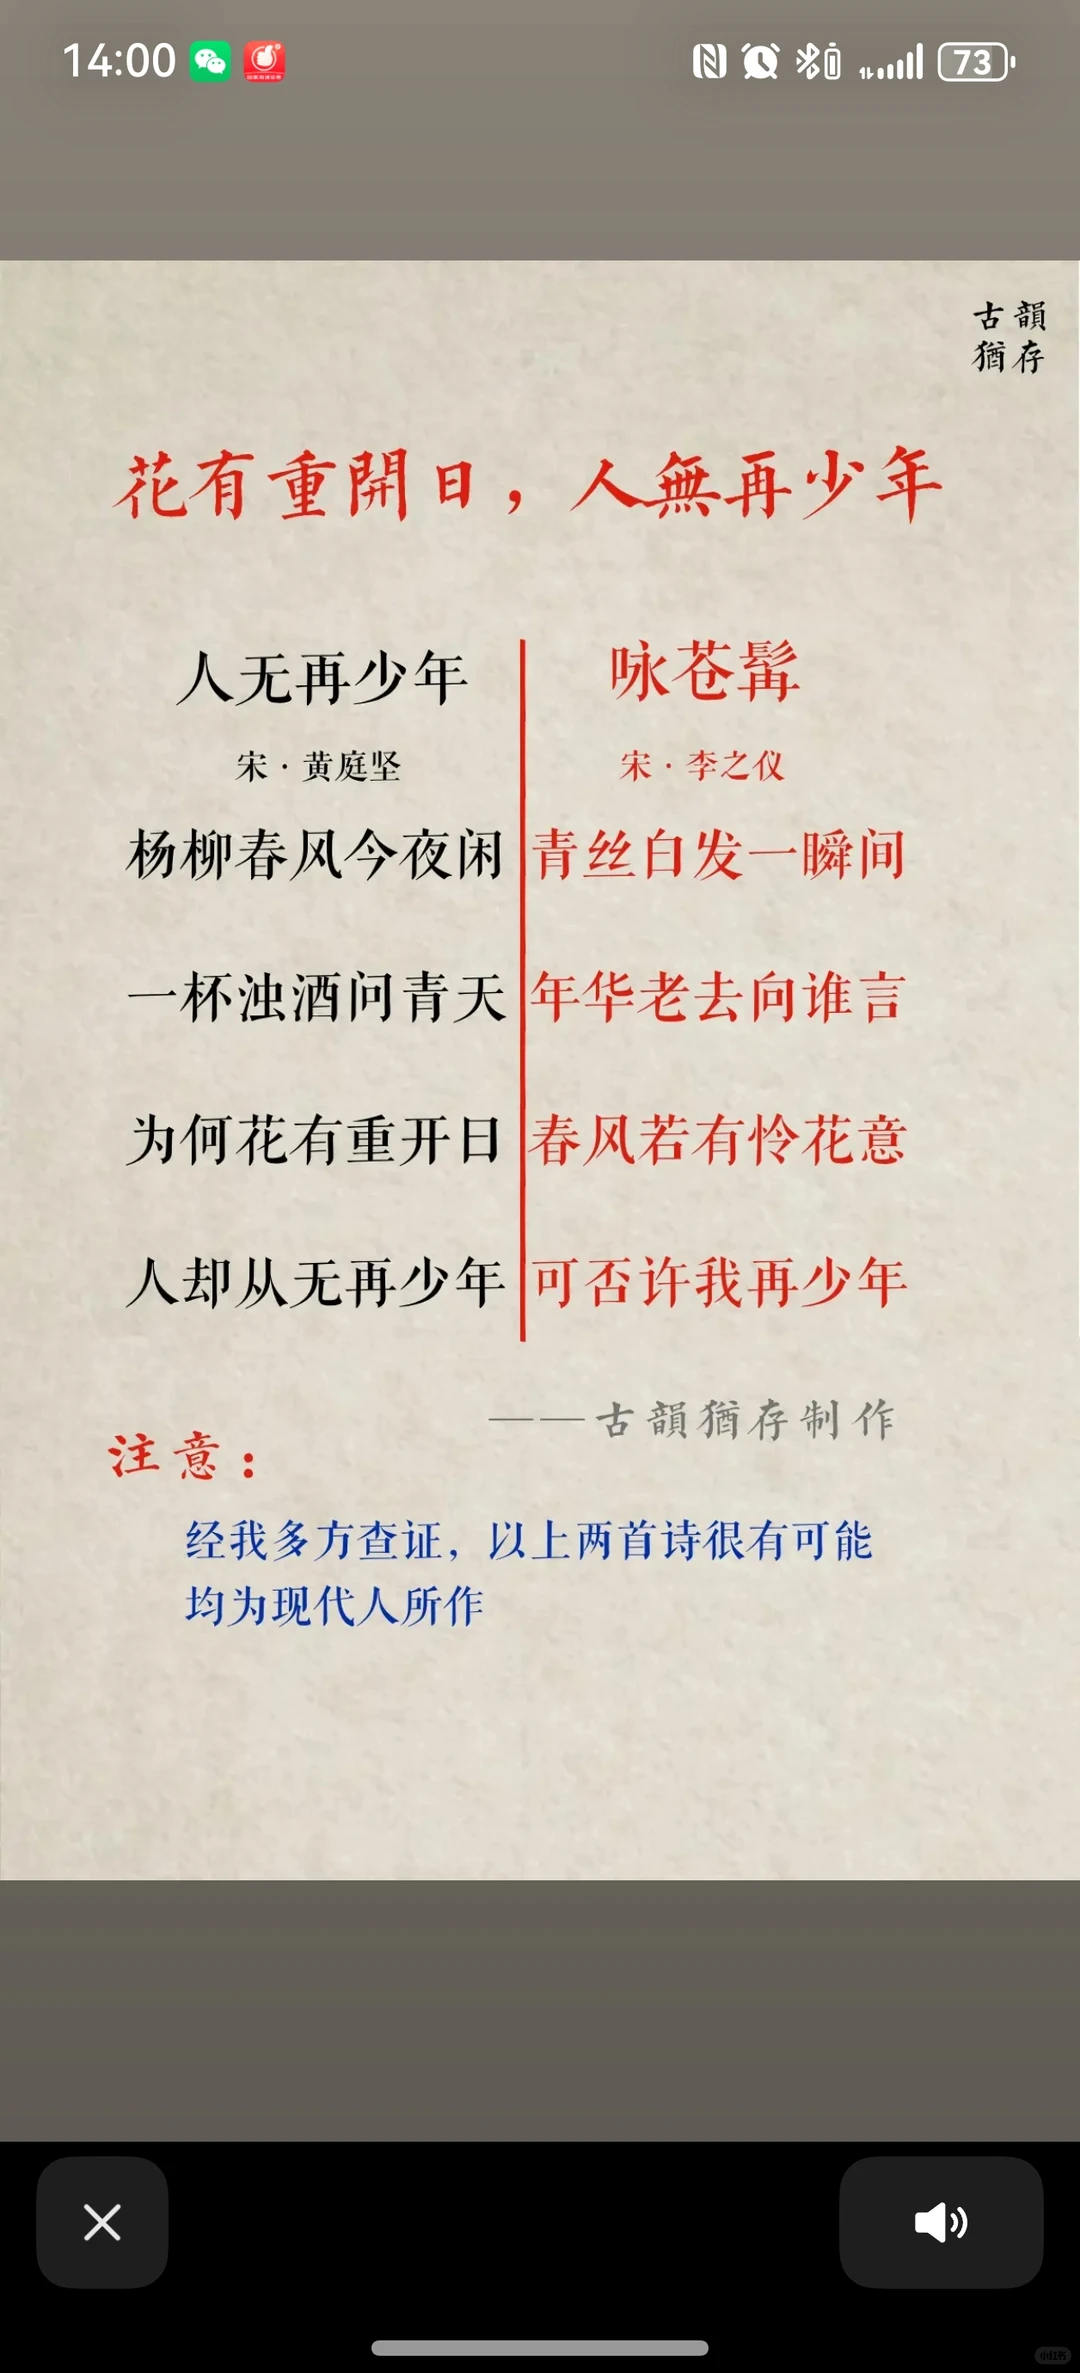 14:00
73
古韻
猶存
花有重開日，人無再少年
人无再少年
宋·黄庭坚
杨柳春风今夜闲
一杯浊酒问青天
为何花有重开日
人却从无再少年
咏苍髯
宋·李之仪
青丝白发一瞬间
年华老去向谁言
春风若有怜花意
可否许我再少年
——古韻猶存制作
注意：
经我多方查证，以上两首诗很有可能
均为现代人所作
小红书